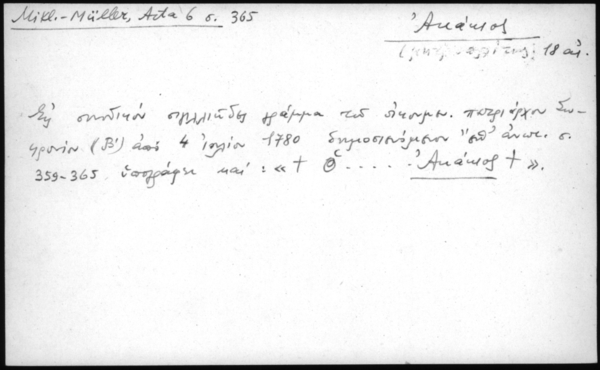 Mikl.-Müller, Acta 6 σ. 365
Ἀκάκιος
(μητροπολίτης) 18 αἰ.
Εἰς συνοδικόν σιγιλλιῶδες γράμμα τοῦ οἰκουμ. πατριάρχου Σω-
φρονίου (Β') ἀπό 4 Ἰουλίου 1780 δημοσιευόμενον ἐπ' ἀνωτ. σ.
359-365 ὑπογράφει καί : «† Ὁ ..... Ἀκάκιος †».